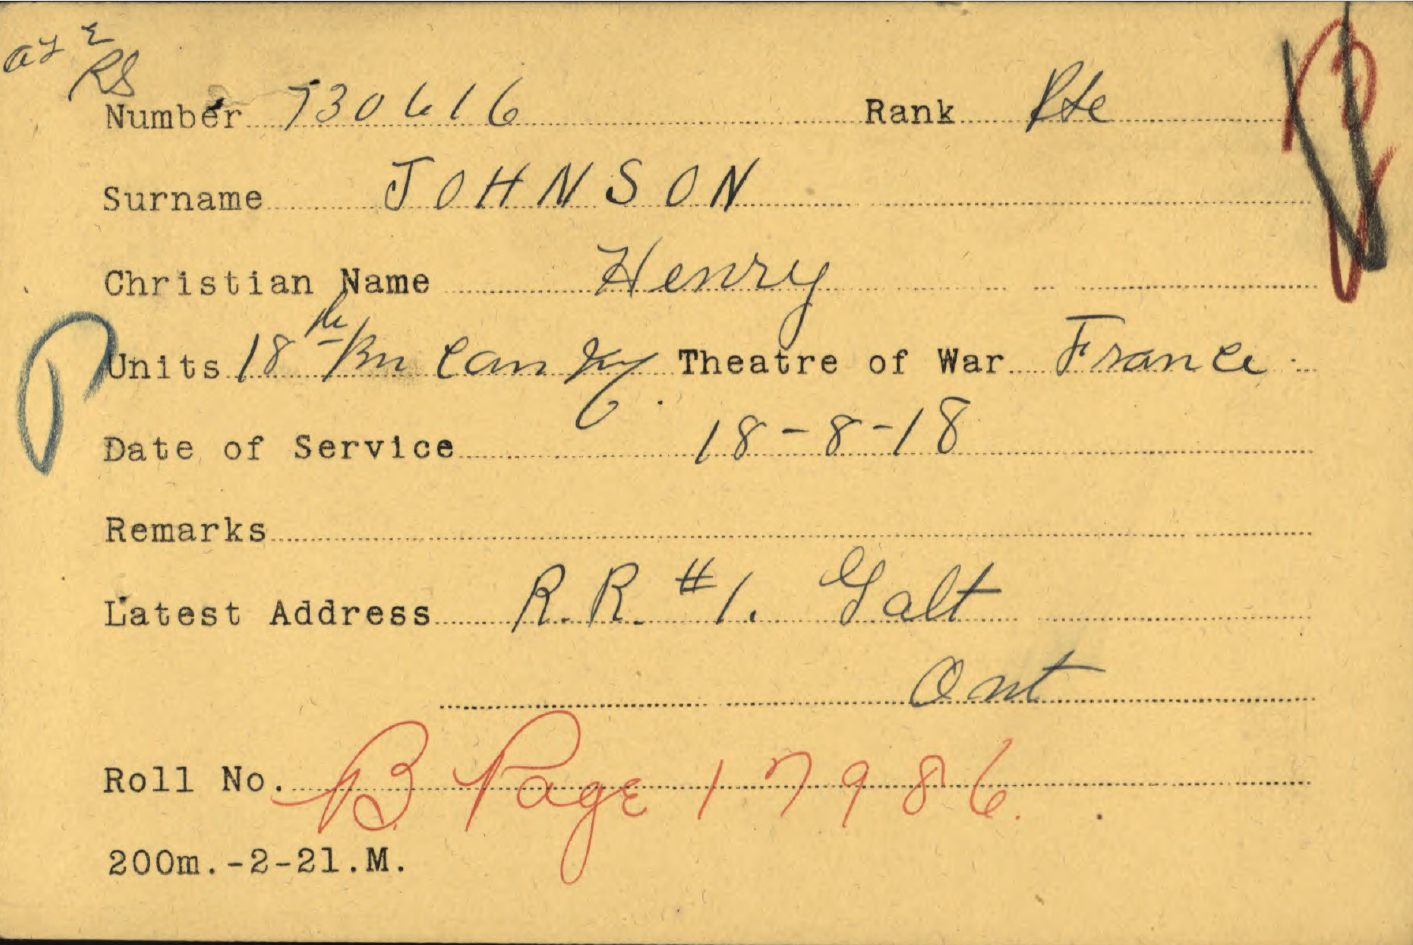 RS
Number 730616 Rank Pte
Surname JOHNSON
Christian Name Henry
Units 18th Bn Can Inf. Theatre of War France
Date of Service 18-8-18
Remarks
Latest Address R.R. #1. Galt
Ont
Roll No. B Page 17986.
200m.-2-21.M.